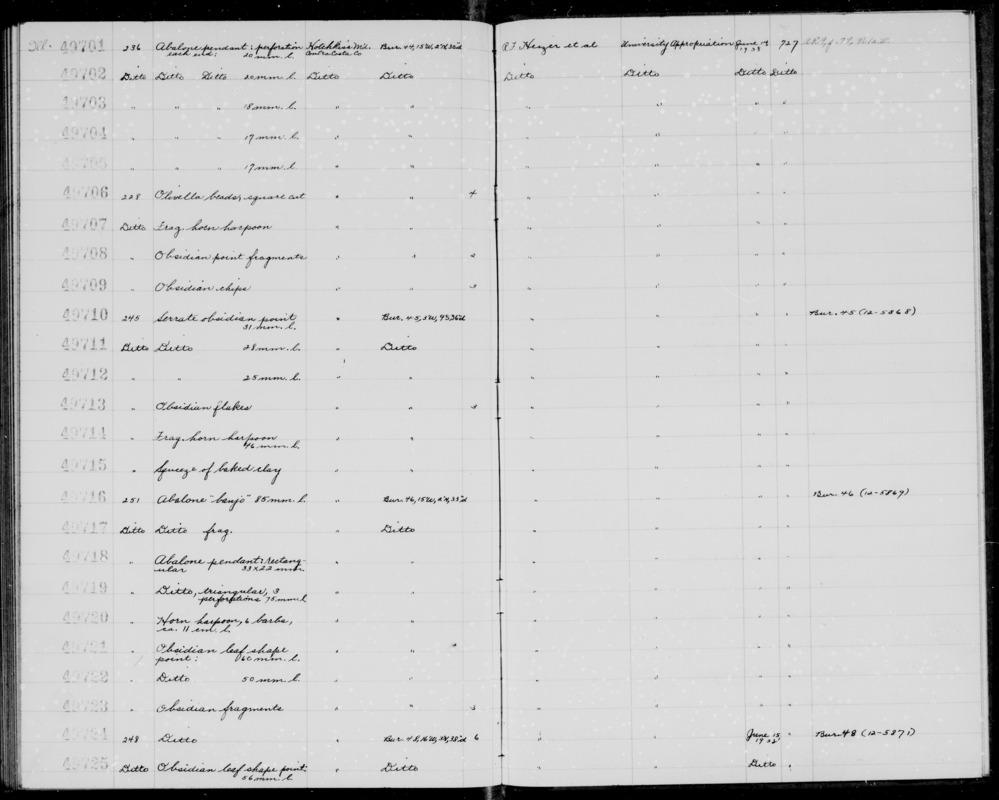 49701 236 Abalone pendant: perforation Hotchkiss Md. Bur. 44, 15W, 2'N, 32"d R.F. Heizer et al University Appropriation June 14 727
each end: 20 mm. l. Contra Costa Co 1938
49702 Ditto Ditto Ditto 20mm. l. Ditto Ditto Ditto Ditto Ditto Ditto
49703 " " " 18 mm. l. " " " " " "
49704 " " " 17 mm. l. " " " " " "
49705 " " " 17 mm. l. " " " " " "
49706 228 Olivella beads, square cut " " 4 " " " "
49707 Ditto Frag. horn harpoon " " " " " "
49708 " Obsidian point fragments " " 2 " " " "
49709 " Obsidian chips " " 3 " " " "
49710 245 Serrate obsidian point " Bur. 45, 5W, 9'S, 36"d " " " " Bur. 45 (12-5868)
31 mm. l.
49711 Ditto Ditto 28 mm. l. " Ditto " " " "
49712 " " 25 mm. l. " " " " " "
49713 " Obsidian flakes " " 3 " " " "
49714 " Frag. horn harpoon " " " " " "
46 mm. l.
49715 " Squeeze of baked clay " " " " " "
49716 251 Abalone "banjo" 85 mm. l. " Bur. 46, 15W, 2'N, 33"d " " " " Bur. 46 (12-5869)
49717 Ditto Ditto frag. " Ditto " " " "
49718 " Abalone pendant: rectang- " " " " " "
ular 33 x 22 mm.
49719 " Ditto, triangular, 3 " " " " " "
perforations 75 mm l
49720 " Horn harpoon, 6 barbs, " " " " " "
ca. 11 cm. l.
49721 " Obsidian leaf shape " " " " " "
point: 60 mm. l.
49722 " Ditto 50 mm. l. " " " " " "
49723 " Obsidian fragments " " 3 " " " "
49724 248 Ditto " Bur. 48, 16W, 38"d 6 " " June 15 " Bur. 48 (12-5871)
1938
49725 Ditto Obsidian leaf shape point: " Ditto " " Ditto "
56 mm. l.